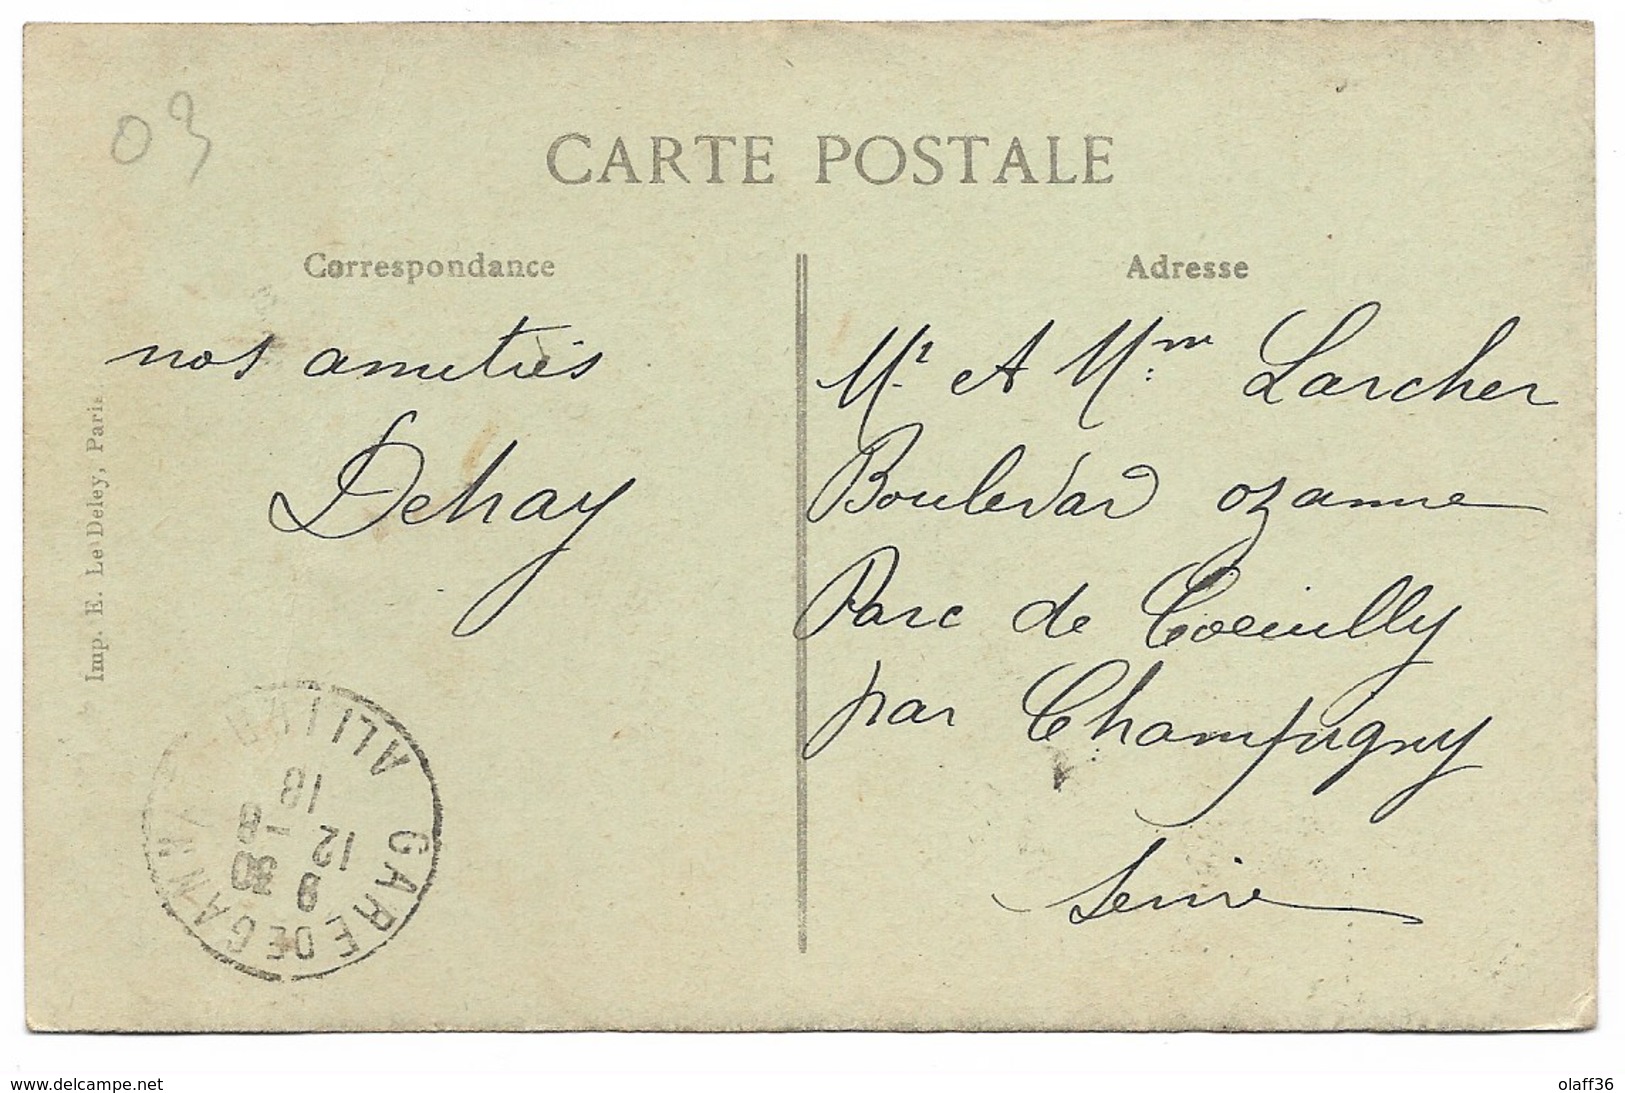 03
CARTE POSTALE
Correspondance
Adresse
nos amitiés
Dehay
Mr et Mme Larcher
Boulevard Ozanne
Parc de Coeuilly
par Champigny
Seine
Imp. E. Le Deley, Paris
GARE DE GANNAT
ALLIER
www.delcampe.net
olaff36